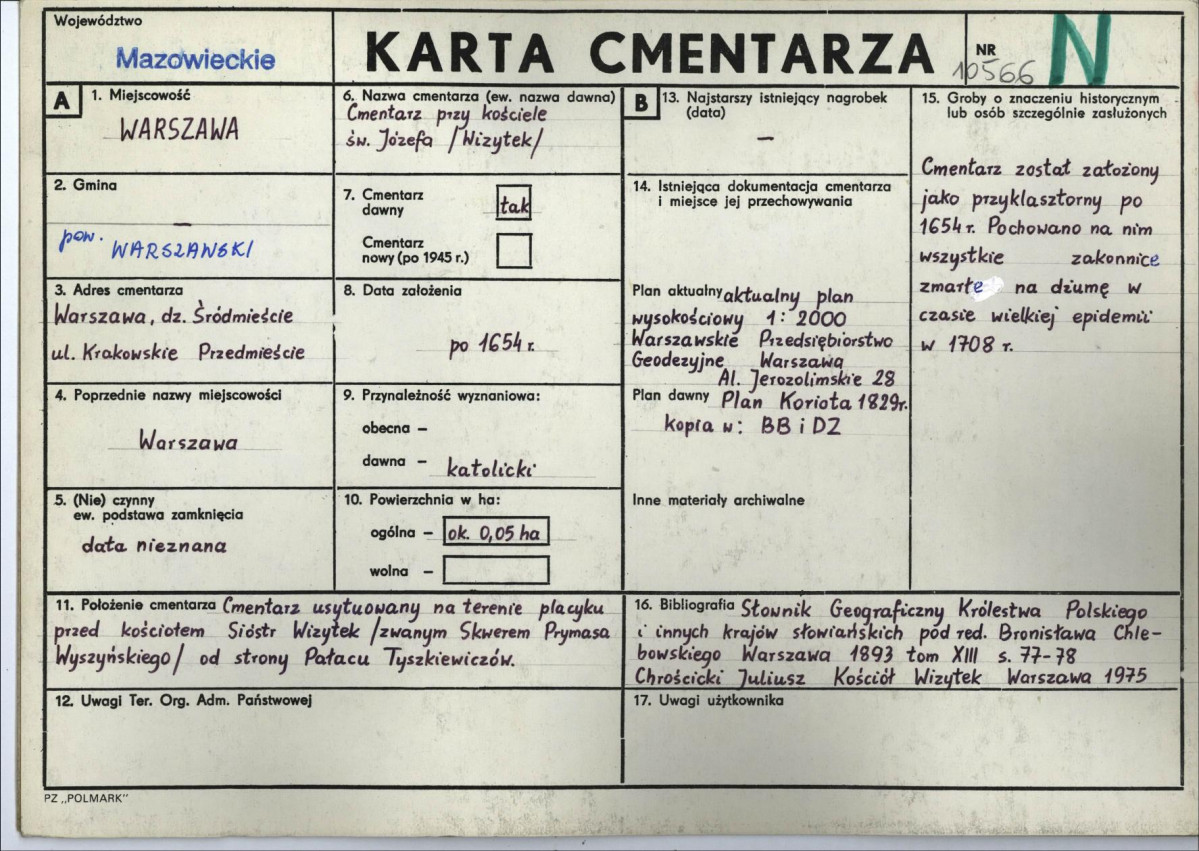 Województwo
Mazowieckie
KARTA CMENTARZA
NR
10566
N
A
1. Miejscowość
WARSZAWA
2. Gmina
—
pow. WARSZAWSKI
3. Adres cmentarza
Warszawa, dz. Śródmieście
ul. Krakowskie Przedmieście
4. Poprzednie nazwy miejscowości
Warszawa
5. (Nie) czynny
ew. podstawa zamknięcia
data nieznana
6. Nazwa cmentarza (ew. nazwa dawna)
Cmentarz przy kościele
św. Józefa /Wizytek/
7. Cmentarz
dawny
tak
Cmentarz
nowy (po 1945 r.)
8. Data założenia
po 1654 r.
9. Przynależność wyznaniowa:
obecna –
dawna – katolicki
10. Powierzchnia w ha:
ogólna – ok. 0,05 ha
wolna –
B
13. Najstarszy istniejący nagrobek
(data)
—
14. Istniejąca dokumentacja cmentarza
i miejsce jej przechowywania
Plan aktualny aktualny plan
wysokościowy 1:2000
Warszawskie Przedsiębiorstwo
Geodezyjne Warszawa
Al. Jerozolimskie 28
Plan dawny Plan Koriota 1829r.
kopia w: BB i DZ
Inne materiały archiwalne
15. Groby o znaczeniu historycznym
lub osób szczególnie zasłużonych
Cmentarz został założony
jako przyklasztorny po
1654 r. Pochowano na nim
wszystkie zakonnice
zmarłe na dżumę w
czasie wielkiej epidemii
w 1708 r.
11. Położenie cmentarza Cmentarz usytuowany na terenie placyku
przed kościołem Sióstr Wizytek /zwanym Skwerem Prymasa
Wyszyńskiego/ od strony Pałacu Tyszkiewiczów.
12. Uwagi Ter. Org. Adm. Państwowej
16. Bibliografia Słownik Geograficzny Królestwa Polskiego
i innych krajów słowiańskich pod red. Bronisława Chle-
bowskiego Warszawa 1893 tom XIII s. 77-78
Chrościcki Juliusz Kościół Wizytek Warszawa 1975
17. Uwagi użytkownika
PZ „POLMARK"